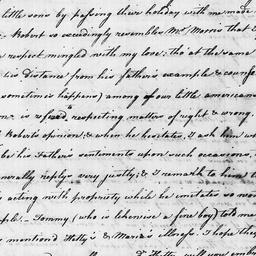 little sons by passing their holiday with me made
- Robert so exceedingly resembles Mr. Morris that I
respect mingled with my love: tho' at the same
his distance from his father's example & counse
sometimes happens) among of our little americans
is refused, respecting matters of right & wrong.
Robert's opinion; & when he hesitates, I ask him w
be his Father's sentiments upon such occasions.
erally replys very justly; & I remark to him t
acting with propriety while he imitates so wor
ple. - Tommy (who is likewise a fine boy) told me
mentioned Hetty's & Maria's illness. I hope the
will you embr